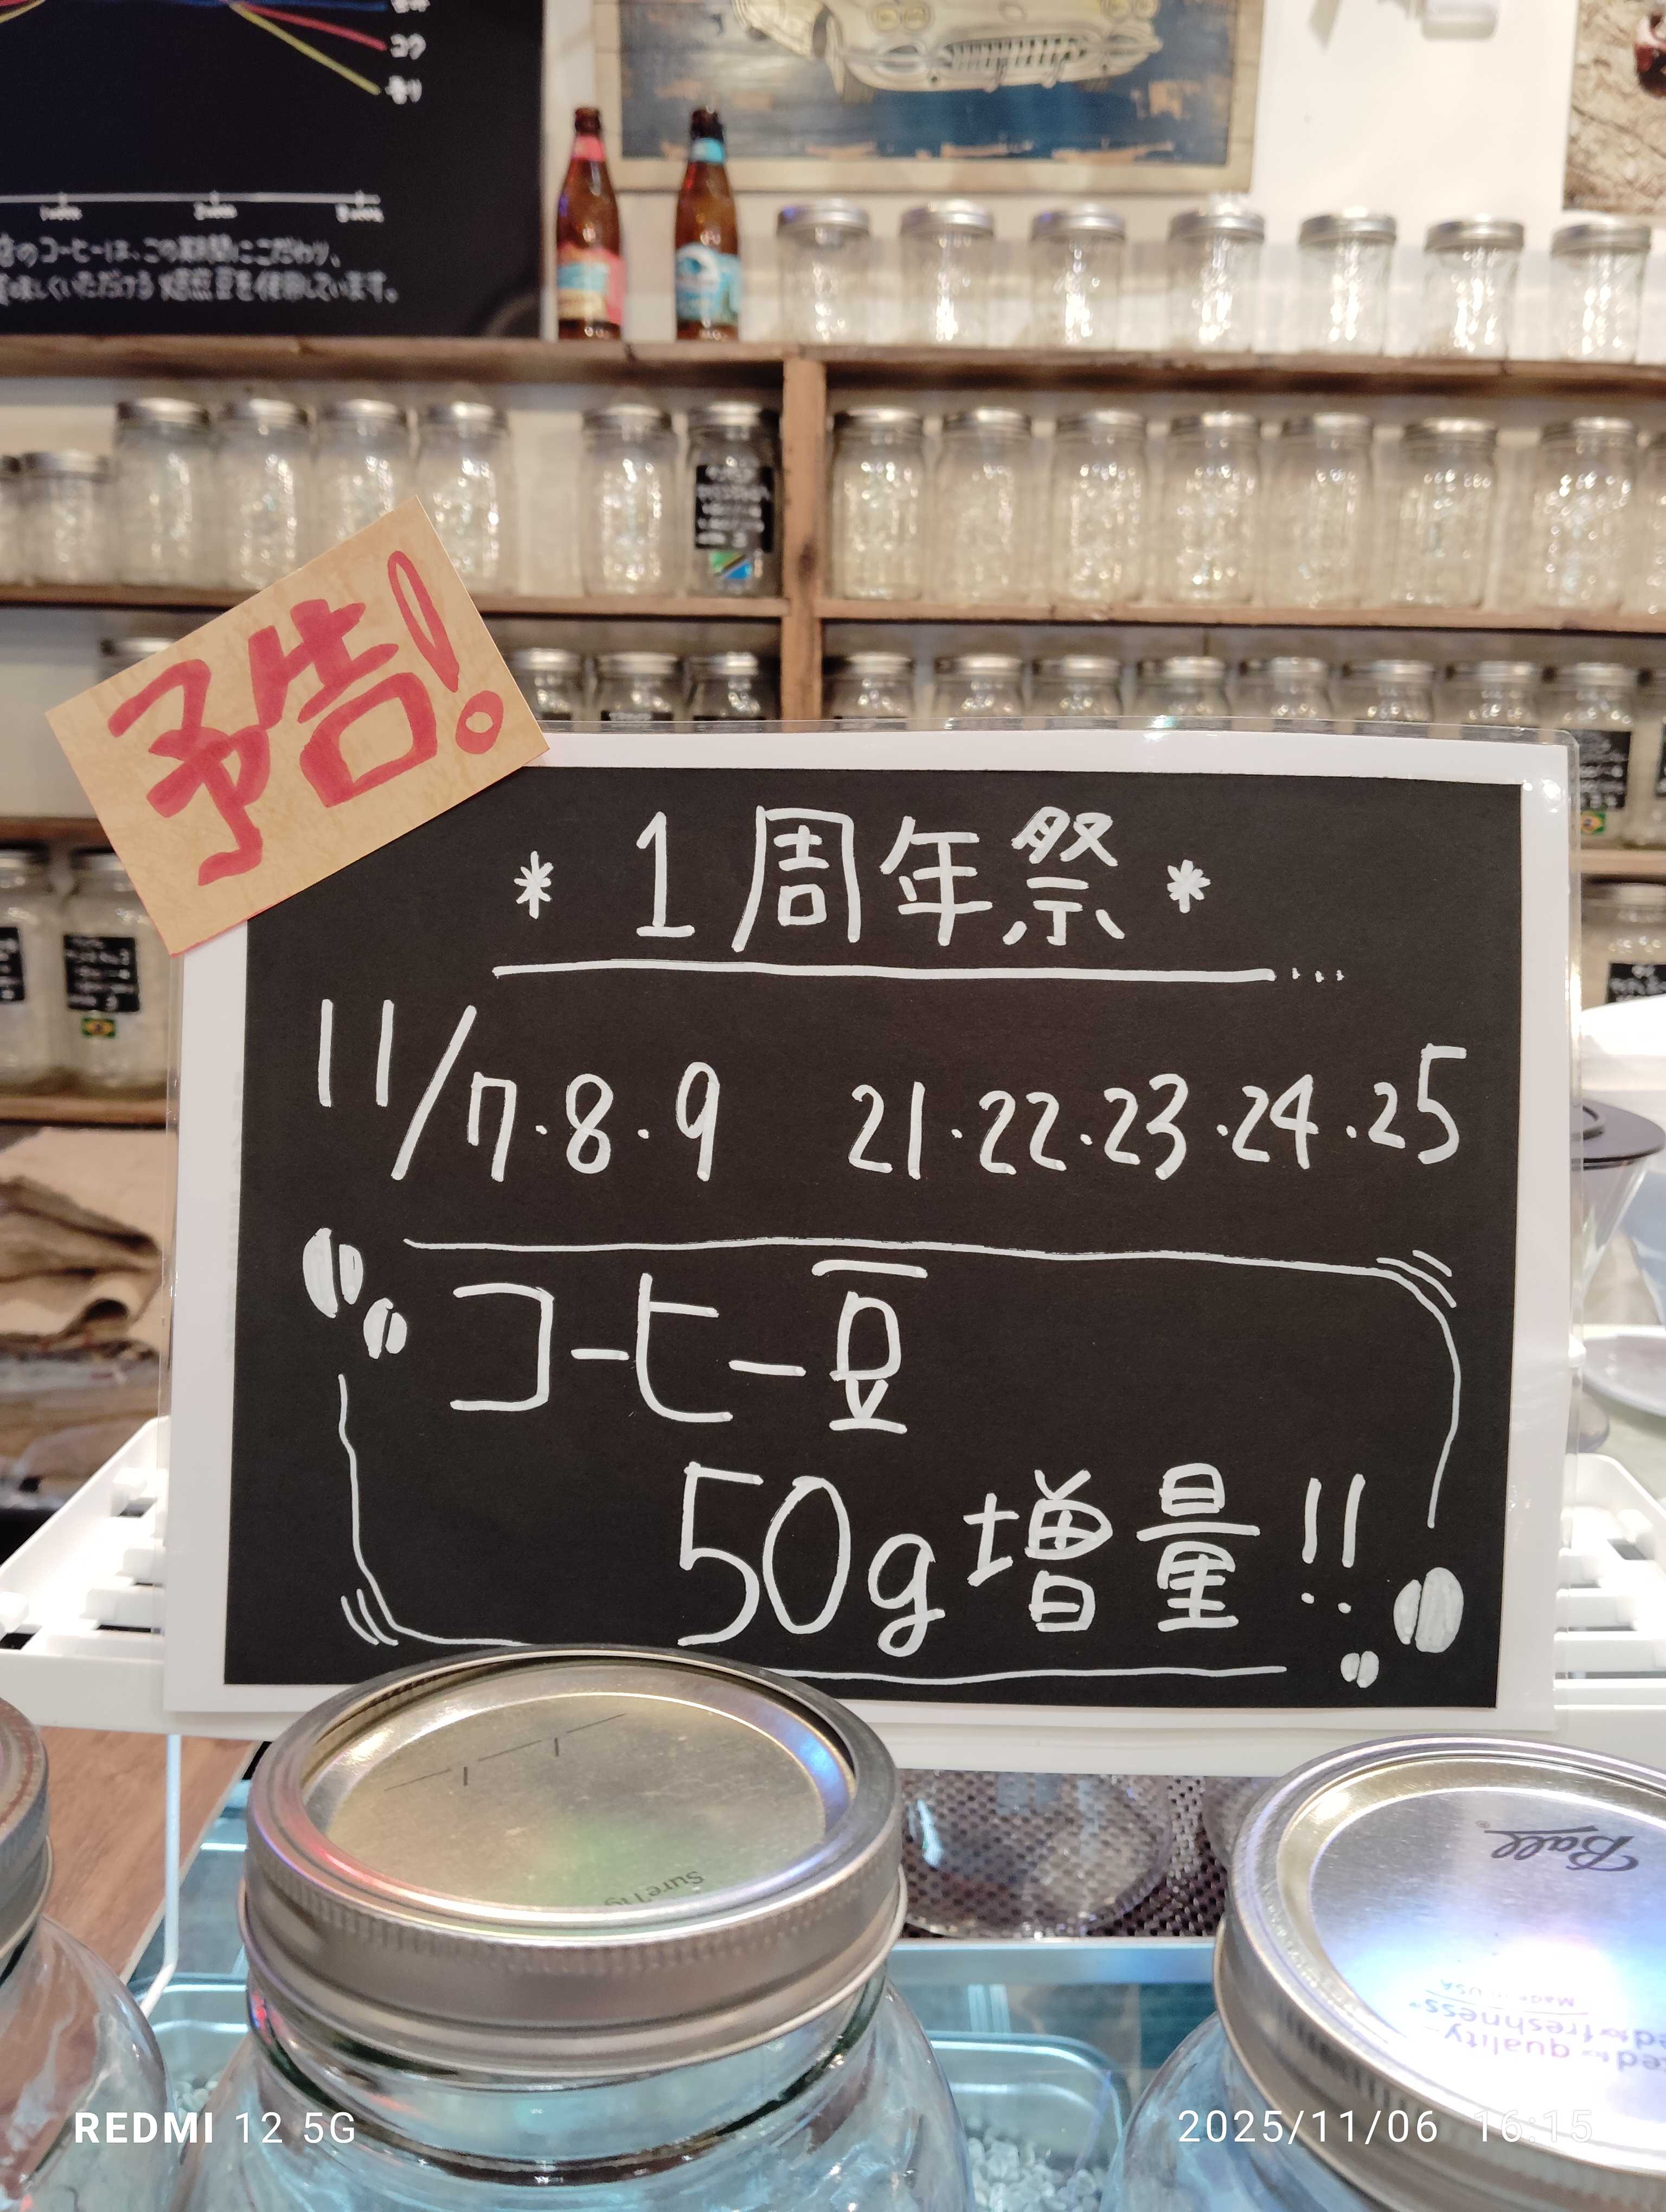 コク
香り
コーヒーは、この期間にこだわり、
いただける焙煎豆を使用しています。
予告!
* 1周年祭 *
11/7・8・9 21・22・23・24・25
コーヒー豆
50g増量!!
Ball
Made in USA
REDMI 12 5G
2025/11/06 16:15